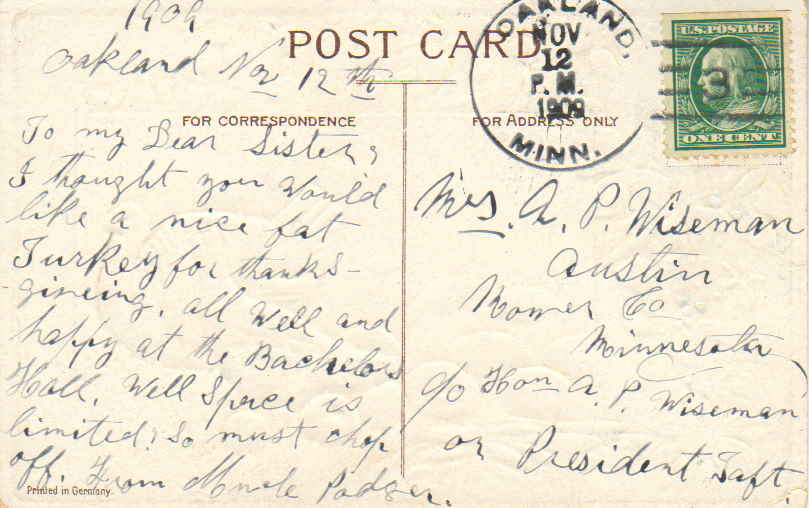 1909
Oakland Nov 12th
POST CARD
FOR CORRESPONDENCE
To my Dear Sister,
I thought you would
like a nice fat
Turkey for thanks-
giveing, all well and
happy at the Bachelors
Hall. Well Space is
limited! So must chop
off. From
Printed in Germany.
OAKLAND,
NOV
12
P.M.
1909
MINN.
U.S. POSTAGE
3
ONE CENT
FOR ADDRESS ONLY
Mrs. A. P. Wiseman
Austin
Mower Co
Minnesota
c/o Hon A. P. Wiseman
or President Taft.